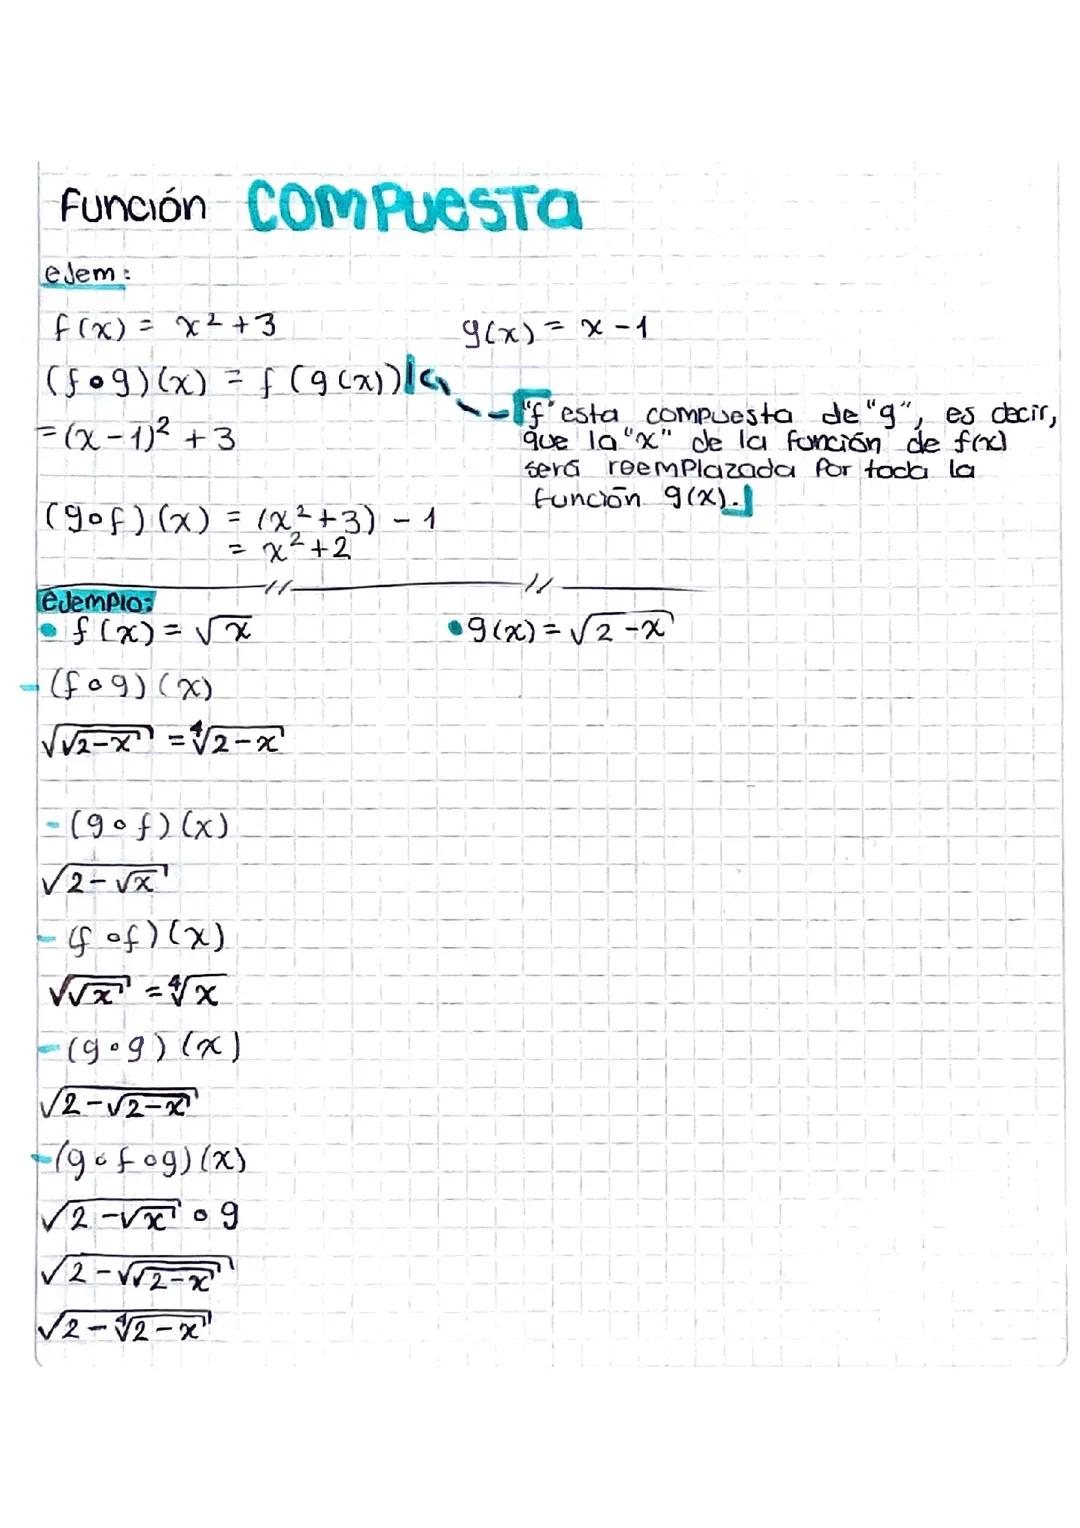 Función COMPUESTA
eJem:
f(x) = x² + 3    g(x) = x - 1
(f∘g)(x) = f(g(x))
= (x-1)² + 3
"f" esta compuesta de "g", es decir,
que la "x" de la función de f(x)
será reemplazada por toda la
función g(x).
(g∘f)(x) = (x²+3) - 1
= x²+2
eJemplo:
• f(x) = √x    • g(x) = √(2-x)
- (f∘g)(x)
√√(2-x) = ⁴√(2-x)
- (g∘f)(x)
√(2-√x)
- (f∘f)(x)
√√x = ⁴√x
- (g∘g)(x)
√(2-√(2-x))
- (g∘f∘g)(x)
√(2-√x) ∘ g
√(2-√√(2-x))
√(2-⁴√(2-x))